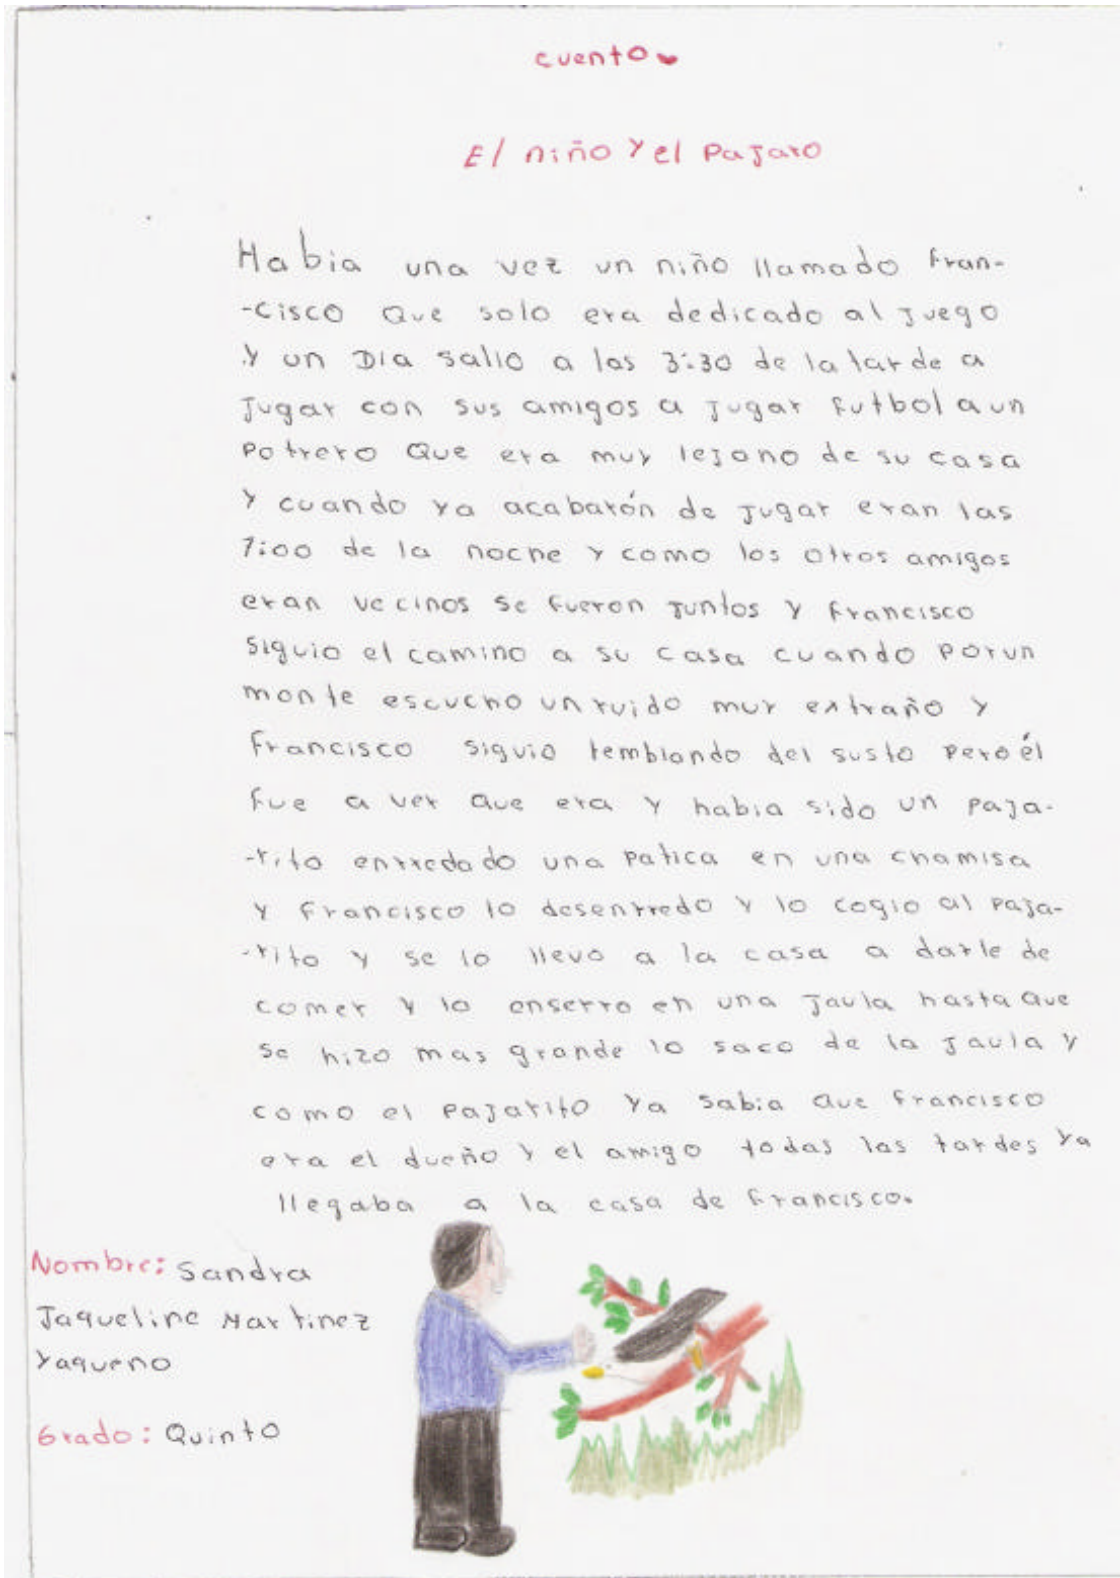 cuento
El niño y el Pajaro
Habia una vez un niño llamado fran-
-cisco Que solo era dedicado al juego
y un Dia salio a las 3:30 de la tarde a
Jugar con sus amigos a Jugar futbol a un
Potrero Que era muy lejano de su casa
y cuando ya acabarón de Jugar eran las
7:00 de la noche y como los otros amigos
eran vecinos se fueron juntos y francisco
siguio el camino a su casa cuando por un
monte escucho un ruido muy extraño y
francisco siguio temblando del susto pero él
fue a ver que era y habia sido un paja-
-rito enrredado una patica en una chamisa
y francisco lo desenrredo y lo cogio al paja-
-rito y se lo llevo a la casa a darle de
comer y lo enserro en una jaula hasta que
se hizo mas grande lo saco de la jaula y
como el pajarito ya sabia que francisco
era el dueño y el amigo todas las tardes ya
llegaba a la casa de francisco.
Nombre: Sandra
Jaqueline Martinez
Yaqueno
Grado: Quinto